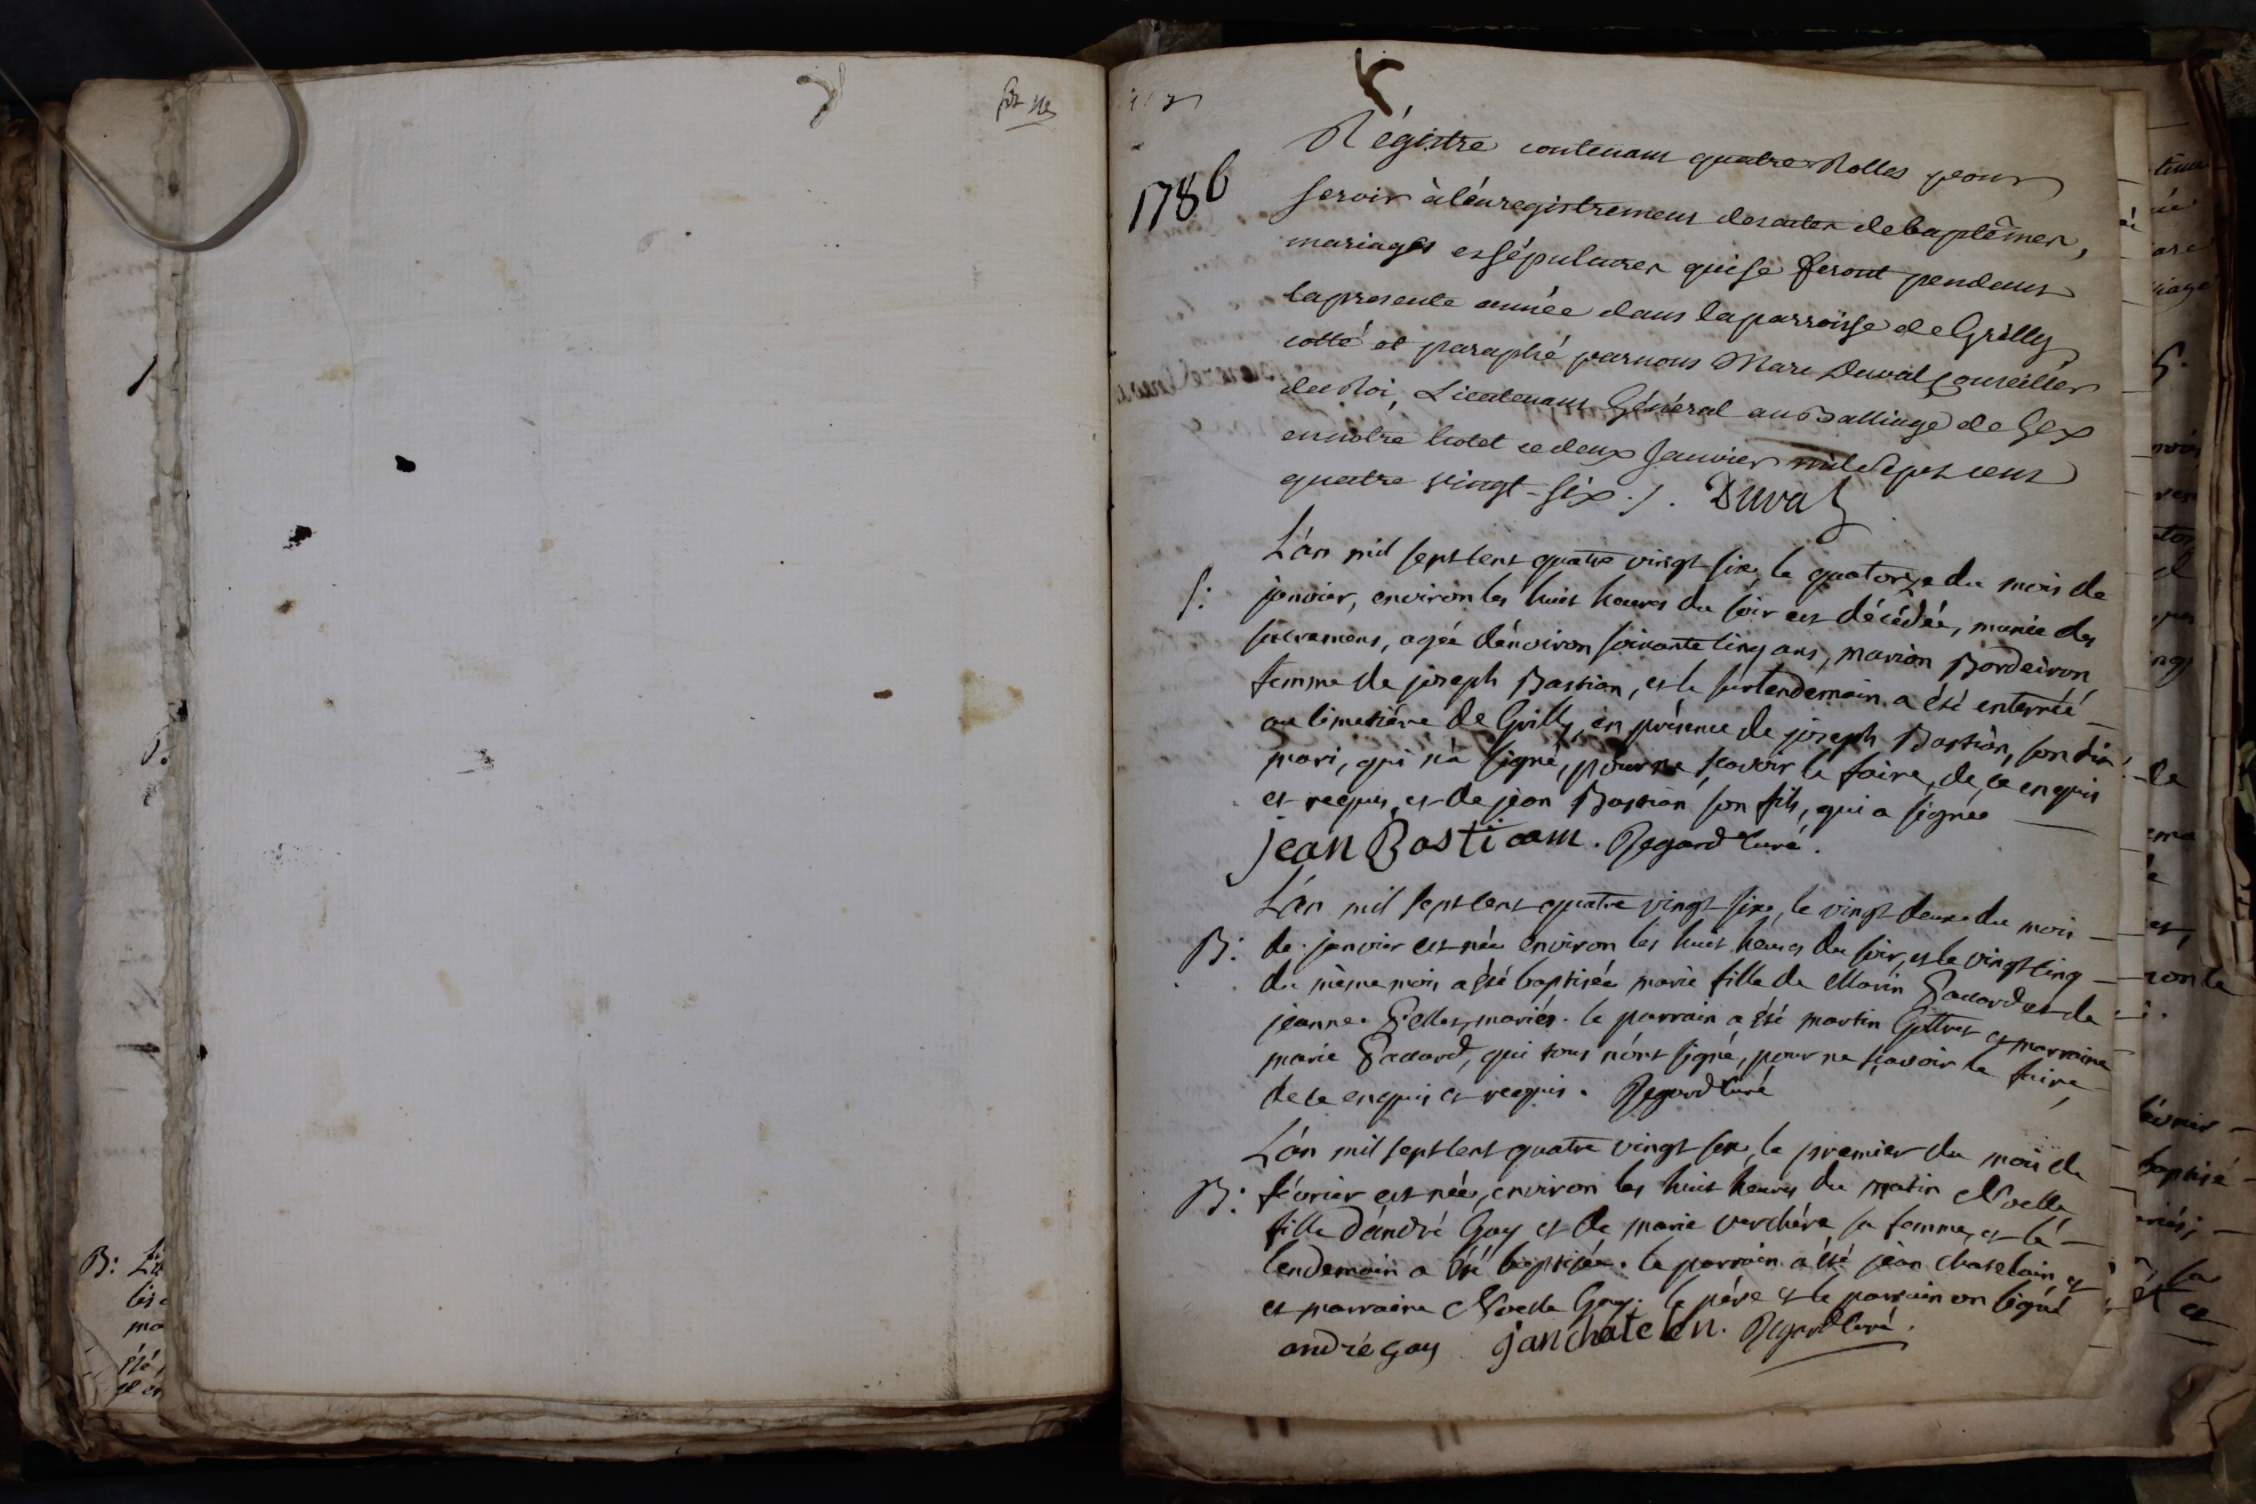 1786
Régistre contenant quatre Rolles pour
servir à l'énregistrement des actes de baptêmes,
mariages et sépultures qui se feront pendant
la presente année dans la parroisse de Grilly,
cotté et paraphé par nous Marc Duval Conseiller
du Roi, Lieutenant Général au Balliage de Gex
en notre hotel ce deux Janvier mil sept cent
quatre vingt-six ./. Duval
L'an mil sept cent quatre vingt six, le quatorze du mois de
S: janvier, environ les huit heures du soir est décédée, munie des
sacremens, agée d'énviron soixante cinq ans, marion Bordeiron
femme de joseph Bastian, et le surlendemain a été enterréé
au cimetiére de Grilly, en présence de joseph Bastian, son dit
mari, qui n'a signé, pour ne sçavoir le faire, de ce enquis
et requis, et de jean Bastian son fils, qui a signée
jean Bastiaam. Regard Curé.
L'an mil sept cent quatre vingt six, le vingt deux du mois
B: de janvier est née environ les huit heures du soir, et le vingt cinq
du même mois a été baptisée marie fille de Marin Pacard et de
jeanne Pelles, mariés. le parrain a été martin et marraine
marie Pacard, qui tous n'ont signé, pour ne sçavoir le faire,
de ce enquis et requis. Regard Curé
L'an mil sept cent quatre vingt six, le premier du mois de
B: février est née, environ les huit heures du matin Noelle
fille d'andré Gay et de marie verchére sa femme, et le
lendemain a été baptisée. le parrain a été jean chatelain et
et marraine Noelle Gay. le pére et le parrain on signé
andré gay janchatelen. Regard Curé.